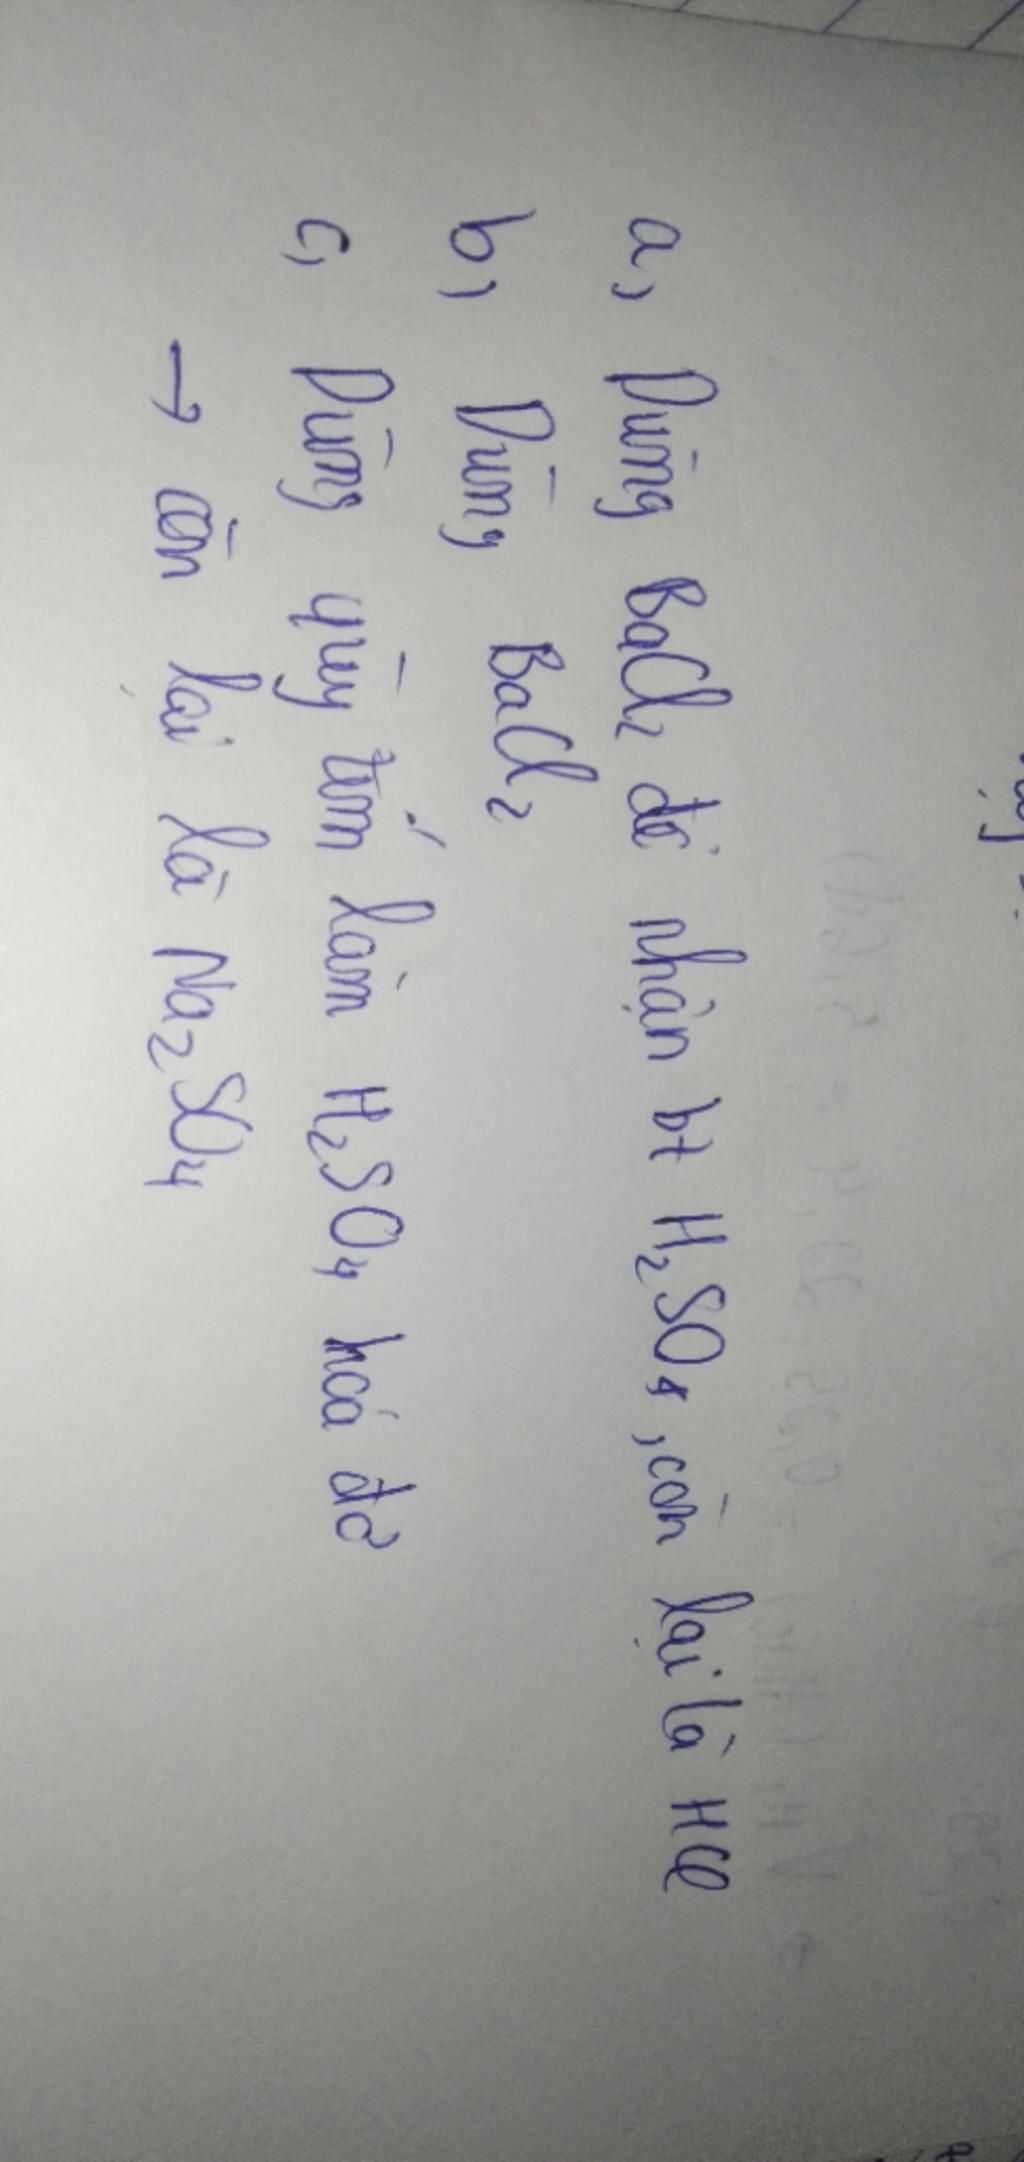 a, Dùng BaCl2 để nhận bt H2SO4, còn lại là HCl
b, Dùng BaCl2
c, Dùng quỳ tím làm H2SO4 hoá đỏ
→ còn lại là Na2SO4